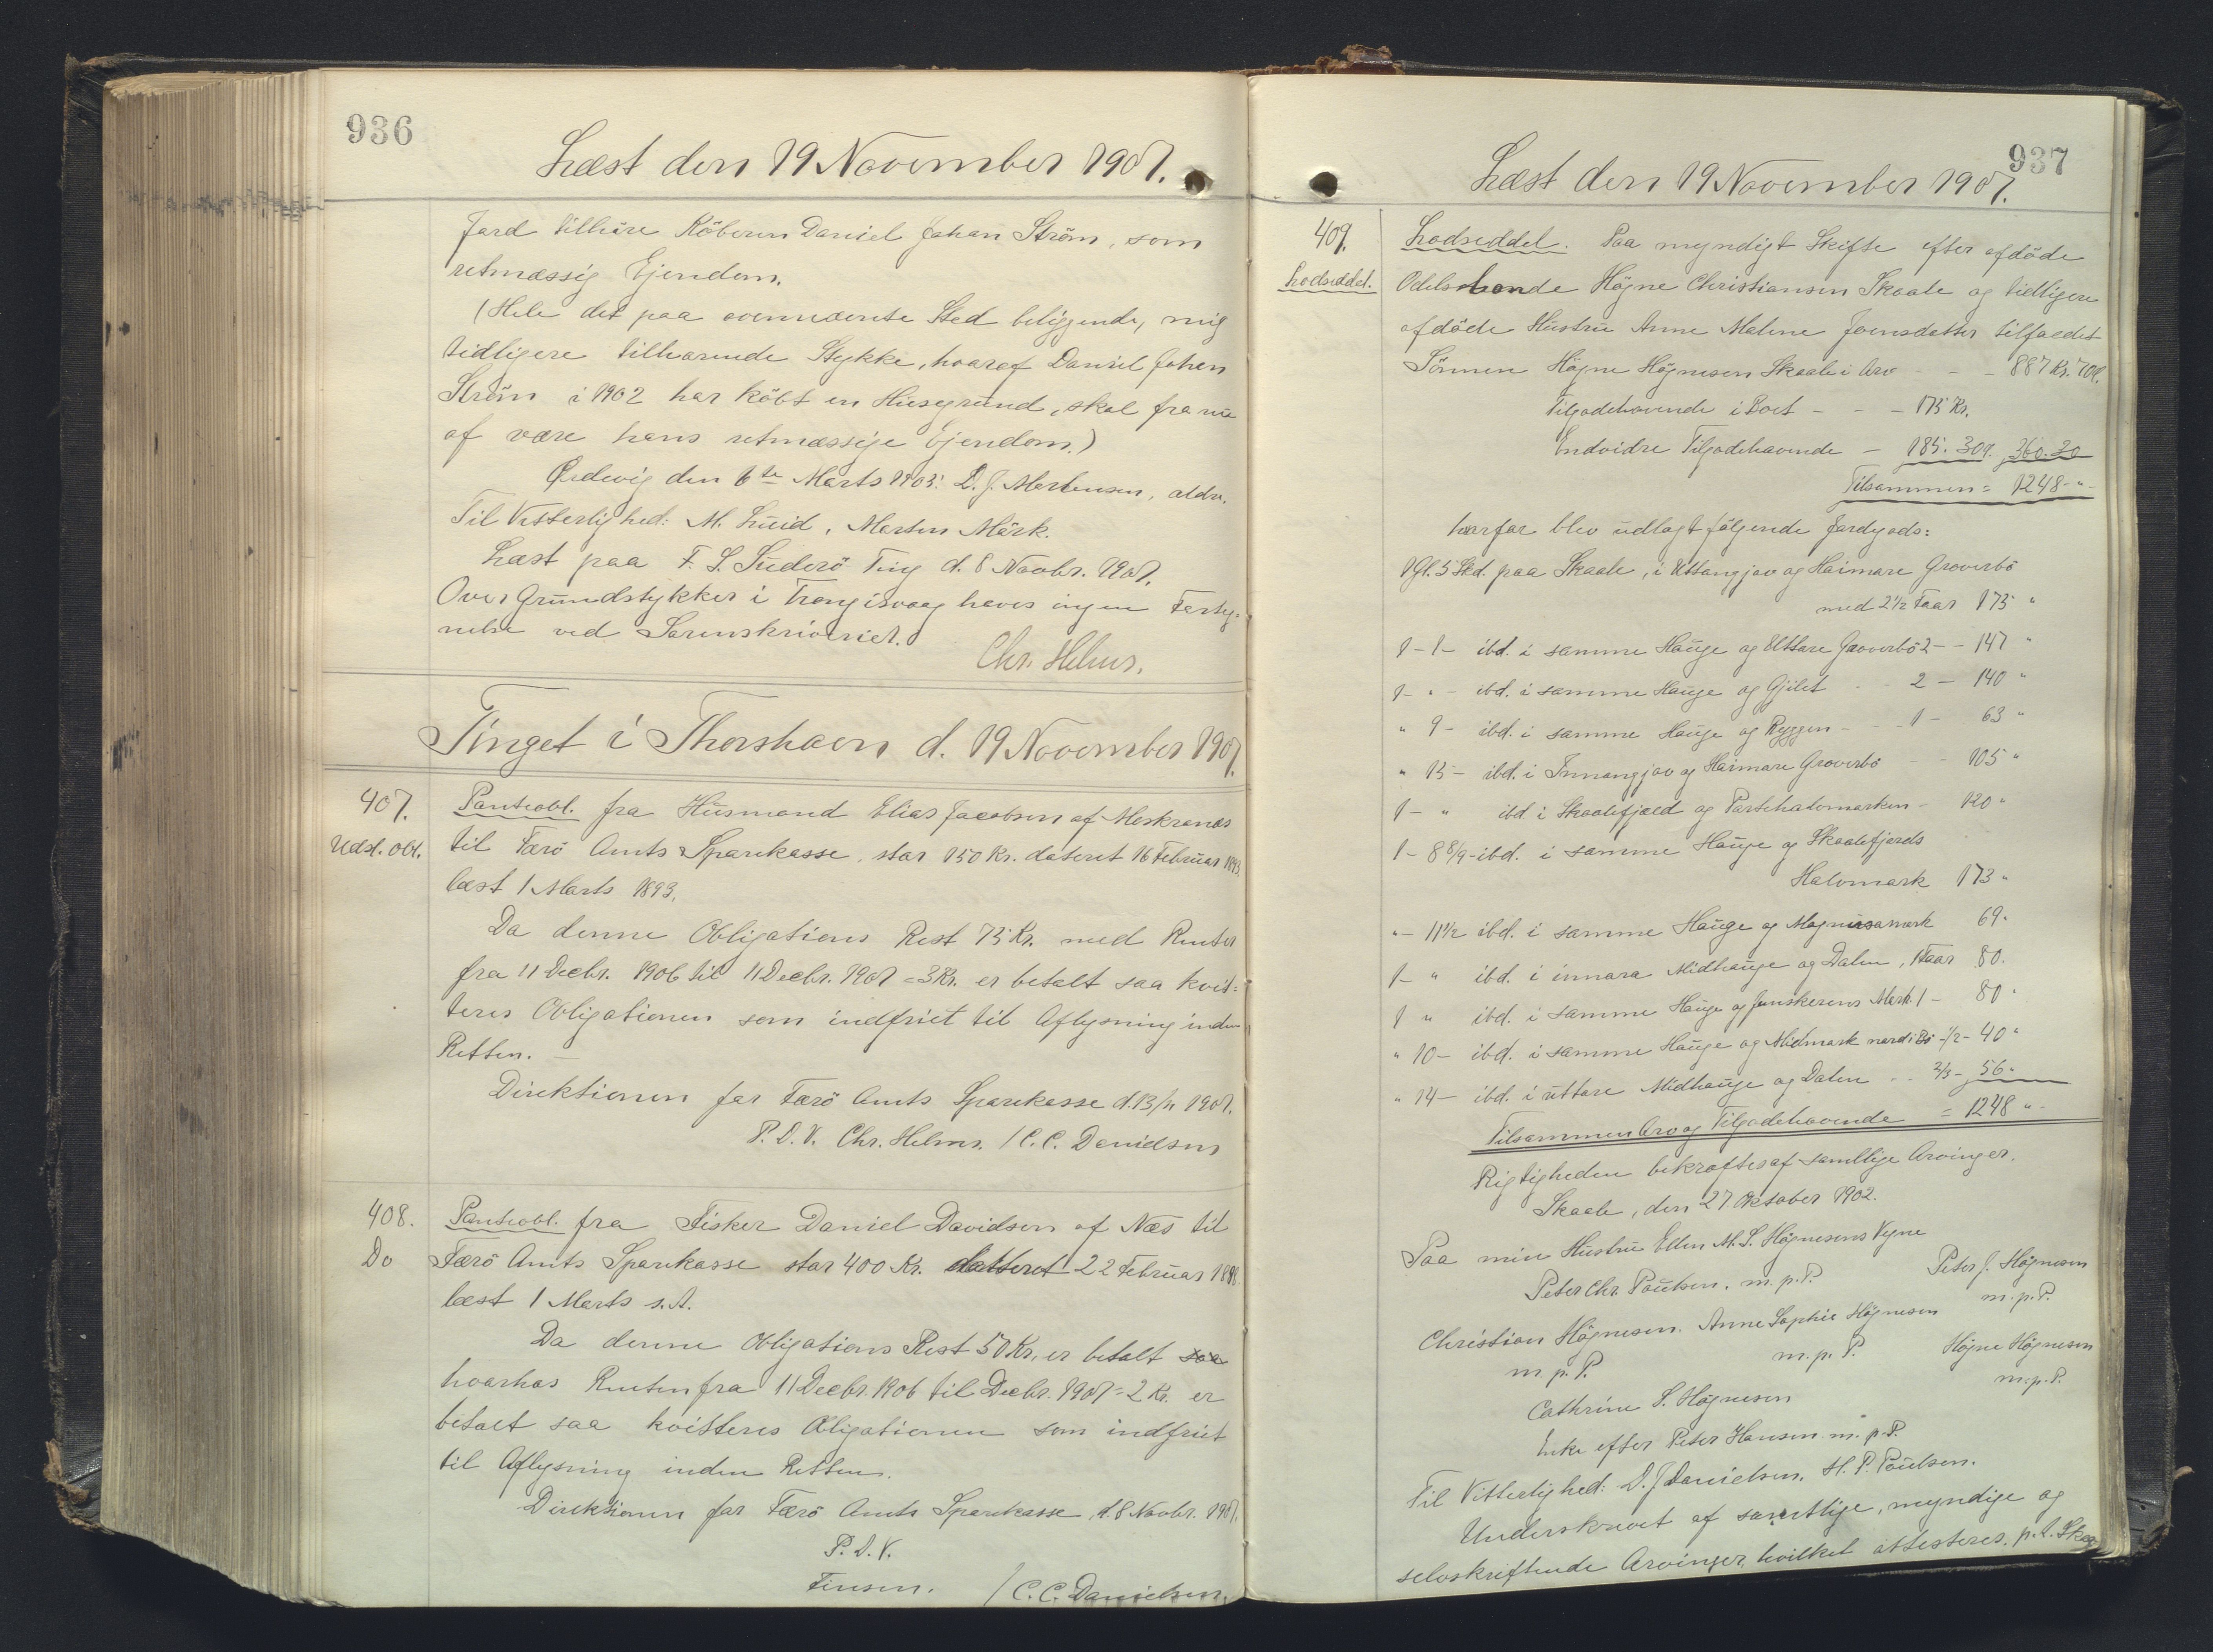 936
Læst den 19 November 1907.
Jord tilhøre Köberen Daniel Johan Ström, som
retmæssig Ejendom.
(Hele det paa ovennævnte Sted beliggende, mig
tidligere tilhørende Stykke, hvoraf Daniel Johan
Ström i 1902 har köbt en Husegrund, skal fra nu
af være hans retmæssige Ejendom.)
Ørdevig den 6te Marts 1903. D. J. Mortensen, aldre.
Til Vitterlighed: M. Luid, Morten Mörk.
Læst paa F. S. Suderö Ting d. 8 Novbr. 1907.
Over Grundstykker i Trangisvaag haves ingen Fæstg-
nelse ved Sorenskriveriet.
Chr. Helms.
Tinget i Thorshavn d. 19 November 1907.
407.
Udsl. Obl.
Panteobl. fra Husmand Elias Jacobsen af Morskranes
til Færö Amts Sparekasse, stor 150 Kr. dateret 16 Februar 1893
læst 1 Marts 1893.
Da denne Obligations Rest 75 Kr. med Renter
fra 11 Decbr. 1906 til 11 Decbr. 1907 = 3 Kr. er betalt saa kvit-
teres Obligationen som indfriet til Aflysning inden
Retten. —
Direktionen for Færö Amts Sparekasse d. 13/11 1907.
P. D. V. Chr. Helms. / C. C. Danielsen
408.
Do
Panteobl. fra Fisker Daniel Davidsen af Næs til
Færö Amts Sparekasse stor 400 Kr. datteret 22 Februar 1898
læst 1 Marts s. A.
Da denne Obligations Rest 50 Kr. er betalt saa
hvorhos Renten fra 11 Decbr. 1906 til Decbr. 1907 = 2 Kr. er
betalt saa kvitteres Obligationen som indfriet
til Aflysning inden Retten.
Direktionen for Færö Amts Sparekasse, d. 8 Novbr. 1907.
P. D. V.
Finsen. / C. C. Danielsen.
937
Læst den 19 November 1907.
409.
Lodseddel.
Lodseddel. Paa myndigt Skifte efter afdöde
Odelsbonde Högne Christiansen Skaale og tidligere
afdöde Hustru Anne Malene Joensdatter tilfaldet
Sönnen Högne Högnesen Skaale i Arv - - - 887 Kr. 70 Ø.
Tilgodehavende i Boet - - - 175 Kr.
Endvidre Tilgodehavende - 185. 30 Ø. 360. 30
Tilsammen = 1248 - " -
hvorfor blev udlagt fölgende Jordgods:
1 Gl. 5 Skd. paa Skaale, i Uttangjov og Haimare Groverbö
med 2½ Faar 175 "
1 - 1 - ibd. i samme Hauge og Uttare Groverbö 2 - - 147 "
1 - " - ibd. i samme Hauge og Gjilet - - 2 - 140 "
" 9 - ibd. i samme Hauge og Ryggen - - - 1 - 63 "
" 15 - ibd. i Innangjov og Haimare Groverbö - - 105 "
1 - " ibd. i Skaalefjæld og Partehalvmarken - 120 "
1 - 8 8/9 - ibd. i samme Hauge og Skaalefjords
Halvmark 173 "
" - 11½ ibd. i samme Hauge og Magnusamork 69 "
1 - " ibd. i innara Midhauge og Dalen, 1 Faar 80.
1 " ibd. i samme Hauge og Junskerens Mark. 1 - 80 "
" 10 - ibd. i samme Hauge og Midmark nordi Bö - ½ - 40 "
" 14 - ibd. i uttare Midhauge og Dalen - - 2/3 - 56 "
Tilsammen Arv og Tilgodehavende = 1248 " -
Rigtigheden bekræftes af samtlige Arvinger.
Skaale, den 27. Oktober 1902.
Paa min Hustru Ellen M. S. Högnesens Vegne
Peter Chr. Poulsen. m. p. P.
Peter J. Högnesen
m. p. P.
Christian Högnesen. Anne Sophie Högnesen
m. p. P. m. p. P.
Högne Högnesen
m. p. P.
Cathrine S. Högnesen
Enke efter Peter Hansen m. p. P.
Til Vitterlighed: D. J. Danielsen. H. P. Poulsen.
Underskrevet af samtlige, myndige og
selvskriftende Arvinger, hvilket attesteres. p. t. Skaa